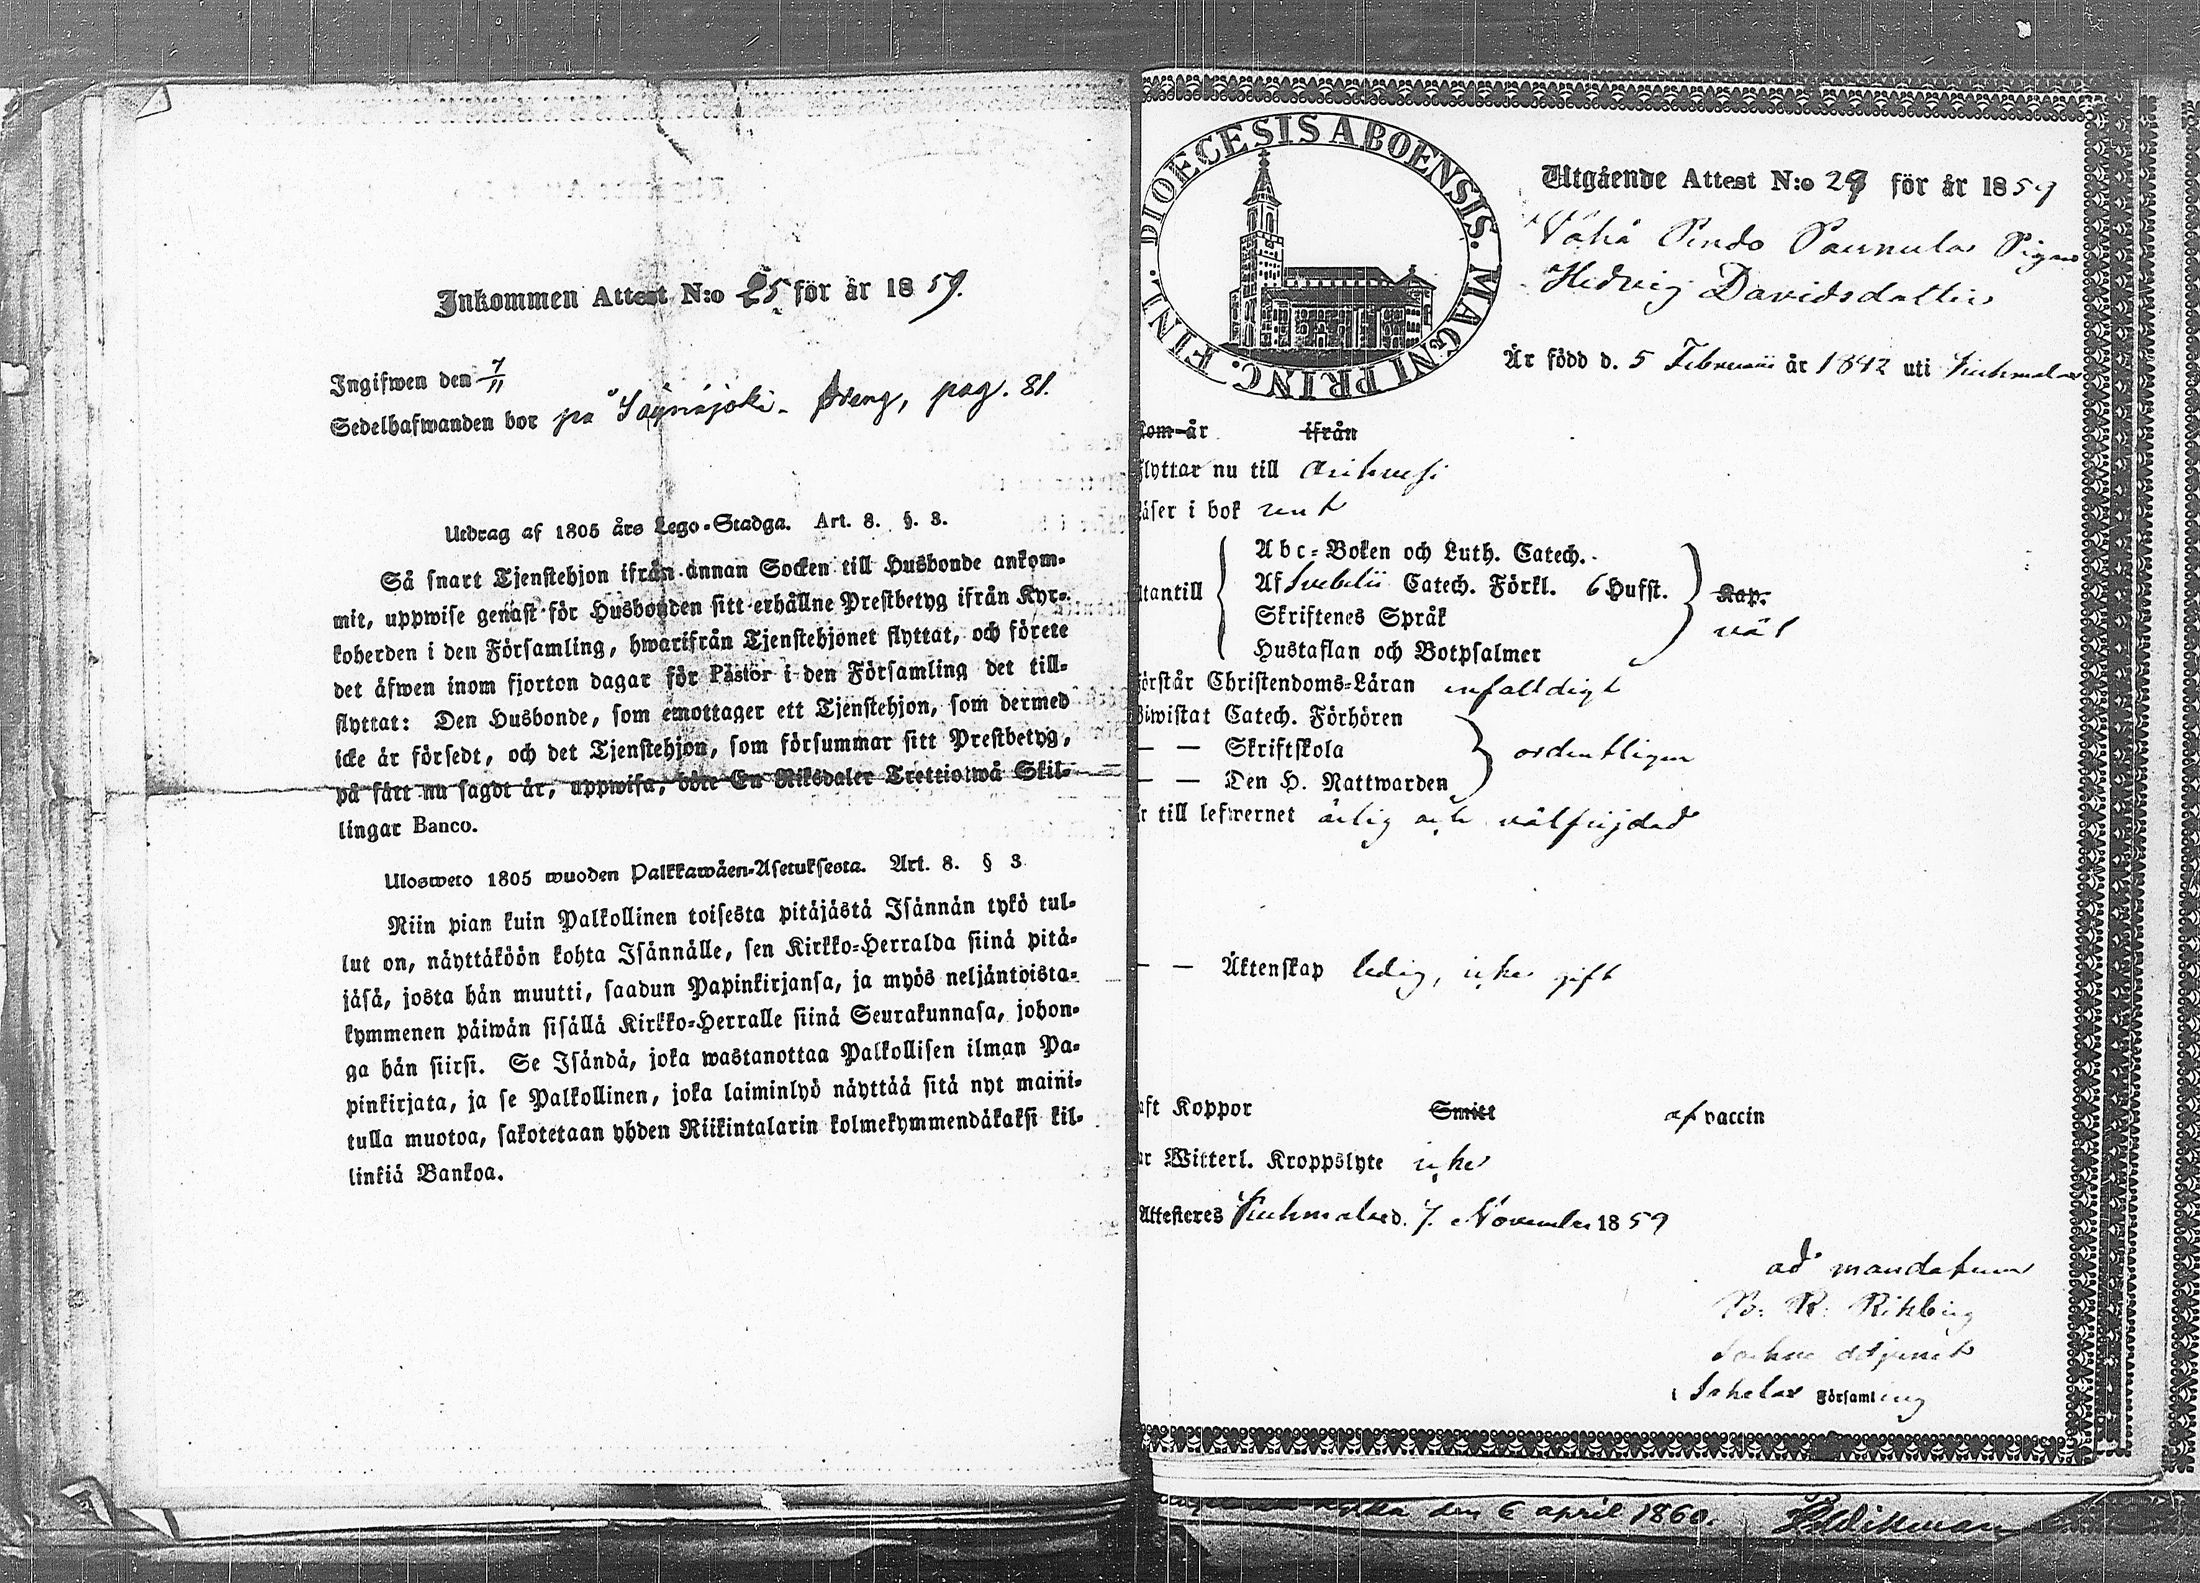 Inkommen Attest N:o 25 för år 1859.
Ingifwen den 7/11
Sedelhafwanden bor på Säynäjoki. Dreng, pag. 81.
Utdrag af 1805 års Lego-Stadga. Art. 8. §. 3.
Så snart Tjenstehjon ifrån annan Socken till Husbonde ankom-
mit, uppwise genast för Husbonden sitt erhållne Prestbetyg ifrån Kyr-
koherden i den Församling, hwarifrån Tjenstehjonet flyttat, och förete
det äfwen inom fjorton dagar för Pastor i den Församling det till-
flyttat: Den Husbonde, som emottager ett Tjenstehjon, som dermed
icke är försedt, och det Tjenstehjon, som försummar sitt Prestbetyg,
på sätt nu sagdt är, uppwisa, böte En Riksdaler Trettiotwå Skil-
lingar Banco.
Ulosweto 1805 wuoden Palkkawäen-Asetuksesta. Art. 8. § 3
Niin pian kuin Palkollinen toisesta pitäjästä Isännän tykö tul-
lut on, näyttäköön kohta Isännälle, sen Kirkko-Herralda siinä pitä-
jäsä, josta hän muutti, saadun Papinkirjansa, ja myös neljäntoista-
kymmenen päiwän sisällä Kirkko-Herralle siinä Seurakunnasa, johon-
ga hän siirsi. Se Isändä, joka wastanottaa Palkollisen ilman Pa-
pinkirjata, ja se Palkollinen, joka laiminlyö näyttää sitä nyt maini-
tulla muotoa, sakotetaan yhden Riikintalarin kolmekymmendäkaksi kil-
linkiä Bankoa.
DIOECESIS ABOENSIS. MAGNI PRINC. FINL.
Utgående Attest N:o 29 för år 1859
Vähä Pendo Paunula Pigan
Hedvig Davidsdotter
Är född d. 5 Februarii år 1842 uti Kuhmalax
kom år ifrån
flyttar nu till Orihvesi
läser i bok rent
utantill
Abc-Boken och Luth. Catech.
Af Svebelii Catech. Förkl. 6 Hufst.
Skriftenes Språk
Hustaflan och Botpsalmer
Kap.
väl
förstår Christendoms-Läran enfaldigt
Biwistat Catech. Förhören
— — Skriftskola
— — Den H. Nattwarden
ordentligen
är till lefwernet ärlig och välfrejdad
— — Äktenskap ledig, icke gift
haft Koppor Smitt af vaccin
har Witterl. Kroppslyte icke
Attesteres Kuhmalax d. 7. November 1859
ad mandatum
B: R: Rihberg
Sockne adjunct
i Sahalax Församling
den 6 april 1860.